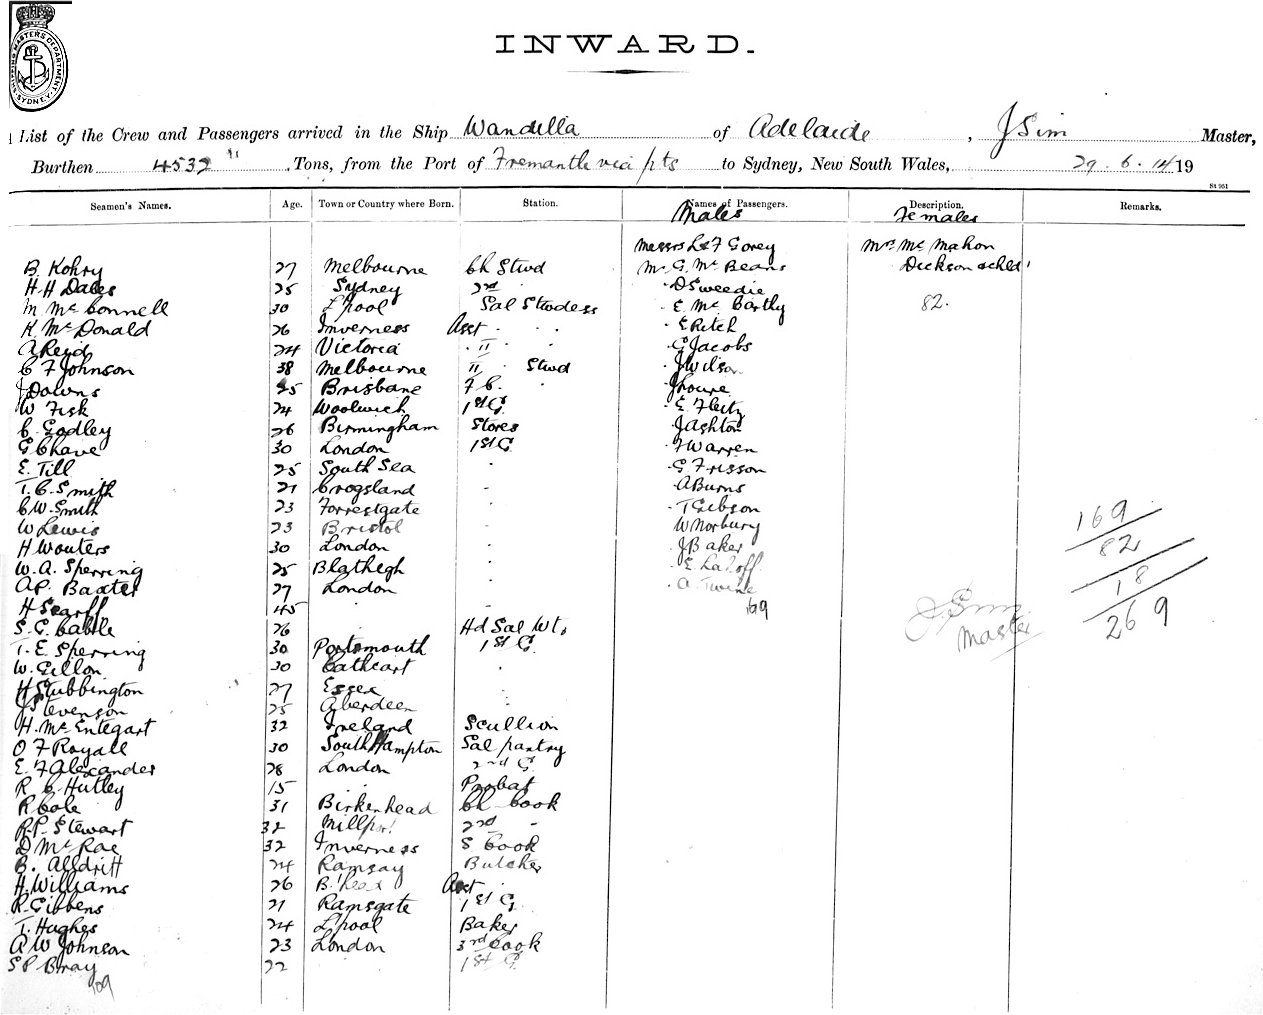 SHIPPING MASTERS DEPARTMENT SYDNEY
INWARD.
List of the Crew and Passengers arrived in the Ship Wandilla of Adelaide, J Sim Master,
Burthen 4532 Tons, from the Port of Fremantle via pts to Sydney, New South Wales, 29.6.14 19
St 951
Seamen's Names. Age. Town or Country where Born. Station. Names of Passengers. Description. Remarks.
Males Females
Messrs L & F Gorey Mrs McMahon
B. Kohry 27 Melbourne Ch Stwd Mr G. McBeans Dickson & chld
H. H Dales 25 Sydney 2nd " D Sweedie
M McConnell 30 L'pool Sal Stwdess E McCarthy 82.
K. McDonald 26 Inverness Asst " " E Ritch
A Reid 24 Victoria " II " G Jacobs
C F Johnson 38 Melbourne II Stwd J Wilson
J Downs 25 Brisbane F C. " J Lowre
W Fisk 24 Woolwich 1st G. E Fleitz
C. Godley 26 Birmingham Stores J Ashton
G Chave 30 London 1st G F Warren
E. Till 25 South Sea " G Frisson
T. C. Smith 21 Crogsland " A Burns
C W. Smith 23 Forrestgate " T Gibson
W Lewis 23 Bristol " W Norbury 169
H Wouters 30 London " J Baker 82
W. A. Sperring 25 Blathegh " E
A. P. Baxter 27 London " A Twine 18
H Scarff 45 " " 169 269
S. G. Cattle 26 Hd Sal Wt. J Sim
T. E. Sperring 30 Portsmouth 1st G. Master
W. Gillon 30 Cathcart "
H Stubbington 27 Essex "
J Stevenson 25 Aberdeen "
H. McEntegart 32 Ireland Scullion
O F Royall 30 SouthHampton Sal pantry
E. F Alexander 28 London 2nd G.
R C Hutley 15 " Probat
R Cole 31 Birkenhead Ch Cook
R. P. Stewart 32 Millport 2nd "
D McRae 32 Inverness S Cook
B. Alldritt 24 Ramsay Butcher
H. Williams 26 B.'head Asst "
R. Gibbens 21 Ramsgate 1st G
T. Hughes 24 L'pool Baker
A W Johnson 23 London 3rd Cook
S P Bray 22 " 1st G.
109